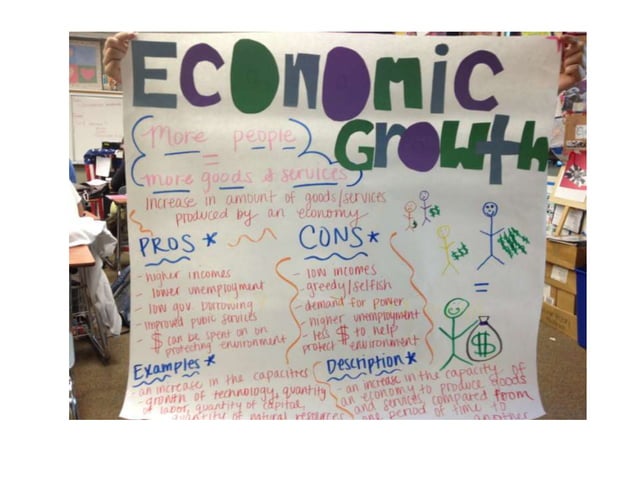 ECONOMIC
Growth
More people
=
more goods & services
increase in amount of goods/services
produced by an economy
PROS *
- higher incomes
- lower unemployment
- low gov. borrowing
- improved public services
- $ can be spent on on
protecting environment
CONS *
- low incomes
- greedy/selfish
- demand for power
- higher unemployment
- less $ to help
protect environment
$
$$
=
$
Examples *
- an increase in the capacities
- growth of technology, quantity
of labor, quantity of capital,
quantity of natural resources
Description *
- an increase in the capacity of
an economy to produce goods
and services, compared from
one period of time to
another